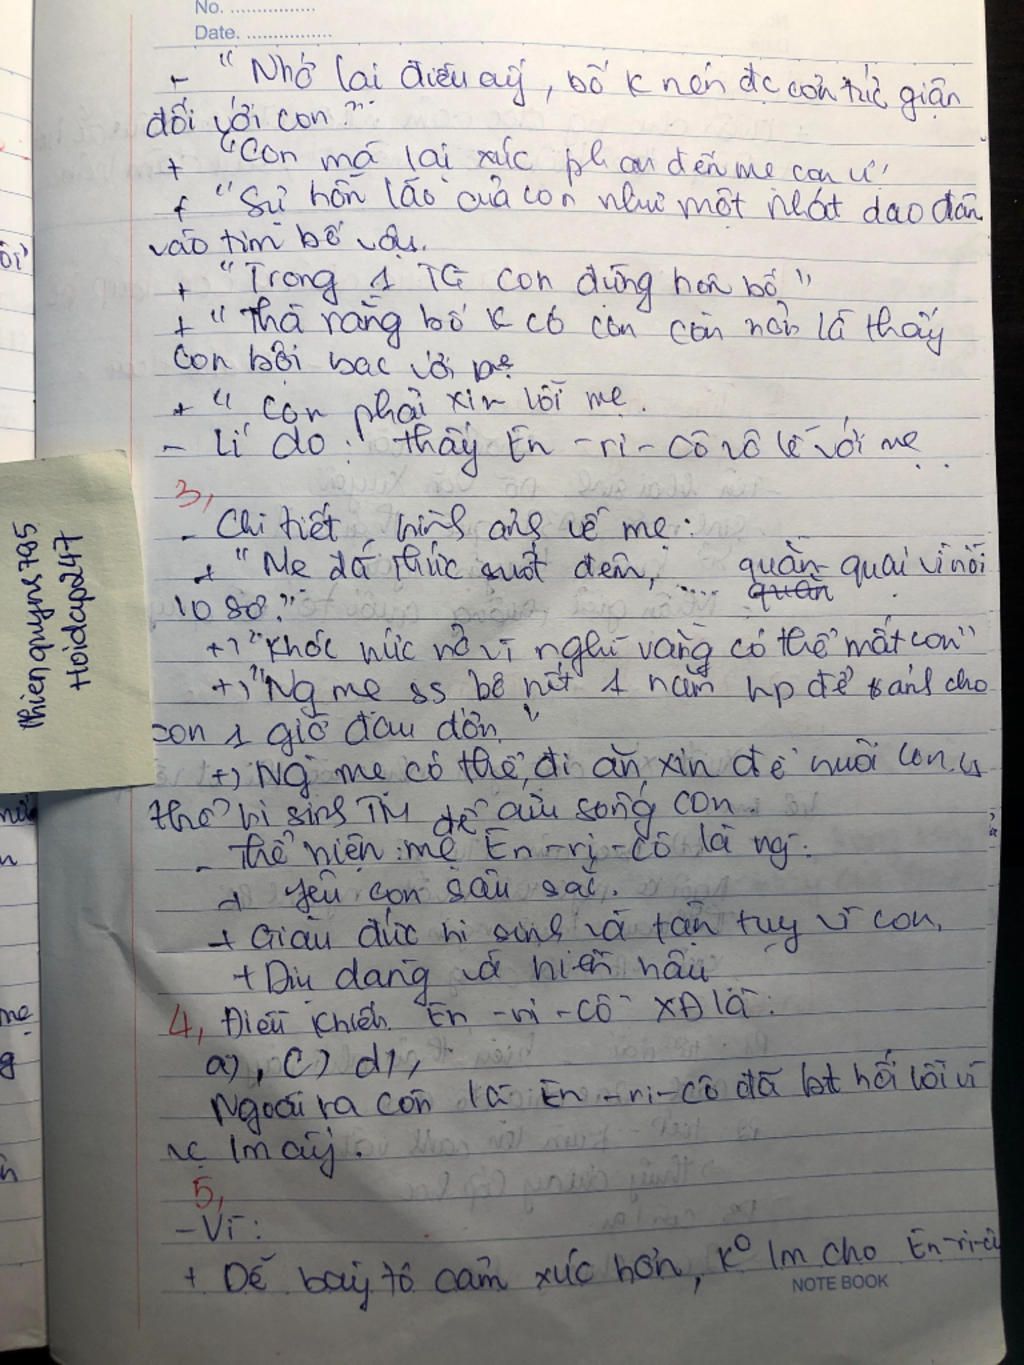 No. ................
Date. ................
- "Nhớ lại điều ấy, bố K nén đc cơn tức giận
đối với con".
+ "Con mà lại xúc phạm đến mẹ con ư"
+ "Sự hỗn láo của con như một nhát dao đâm
vào tim bố vậy.
+ "Trong 1 TG con đừng hôn bố"
+ "Thà rằng bố K có con còn hơn là thấy
con bội bạc với mẹ
+ " Con phải xin lỗi mẹ.
- Lí do : thấy En -ri-cô vô lễ với mẹ
3,
- Chi tiết, hình ảnh về mẹ:
+ "Mẹ đã thức suốt đêm, .... quằn quại vì nỗi
quằn
lo sợ".
+) "Khóc nức nở vì nghĩ rằng có thể mất con"
+) "Ng mẹ ss bỏ hết 1 năm hp để tránh cho
con 1 giờ đau đớn"
+) Ng mẹ có thể đi ăn xin để nuôi con, có
thể hi sinh TM để cứu sống con.
- Thể hiện: mẹ En-ri-cô là ng:
+ yêu con sâu sắc.
+ Giàu đức hi sinh và tận tụy vì con.
+ Dịu dàng và hiền hậu
4, Điều khiến En -ri-cô XĐ là:
a), c) d),
Ngoài ra còn là En -ri-cô đã bt hối lỗi vì
vc lm ấy.
5,
- Vì:
+ Dễ bày tỏ cảm xúc hơn, Ko lm cho En-ri-cô
NOTE BOOK
thienquyns785
Hoidap247